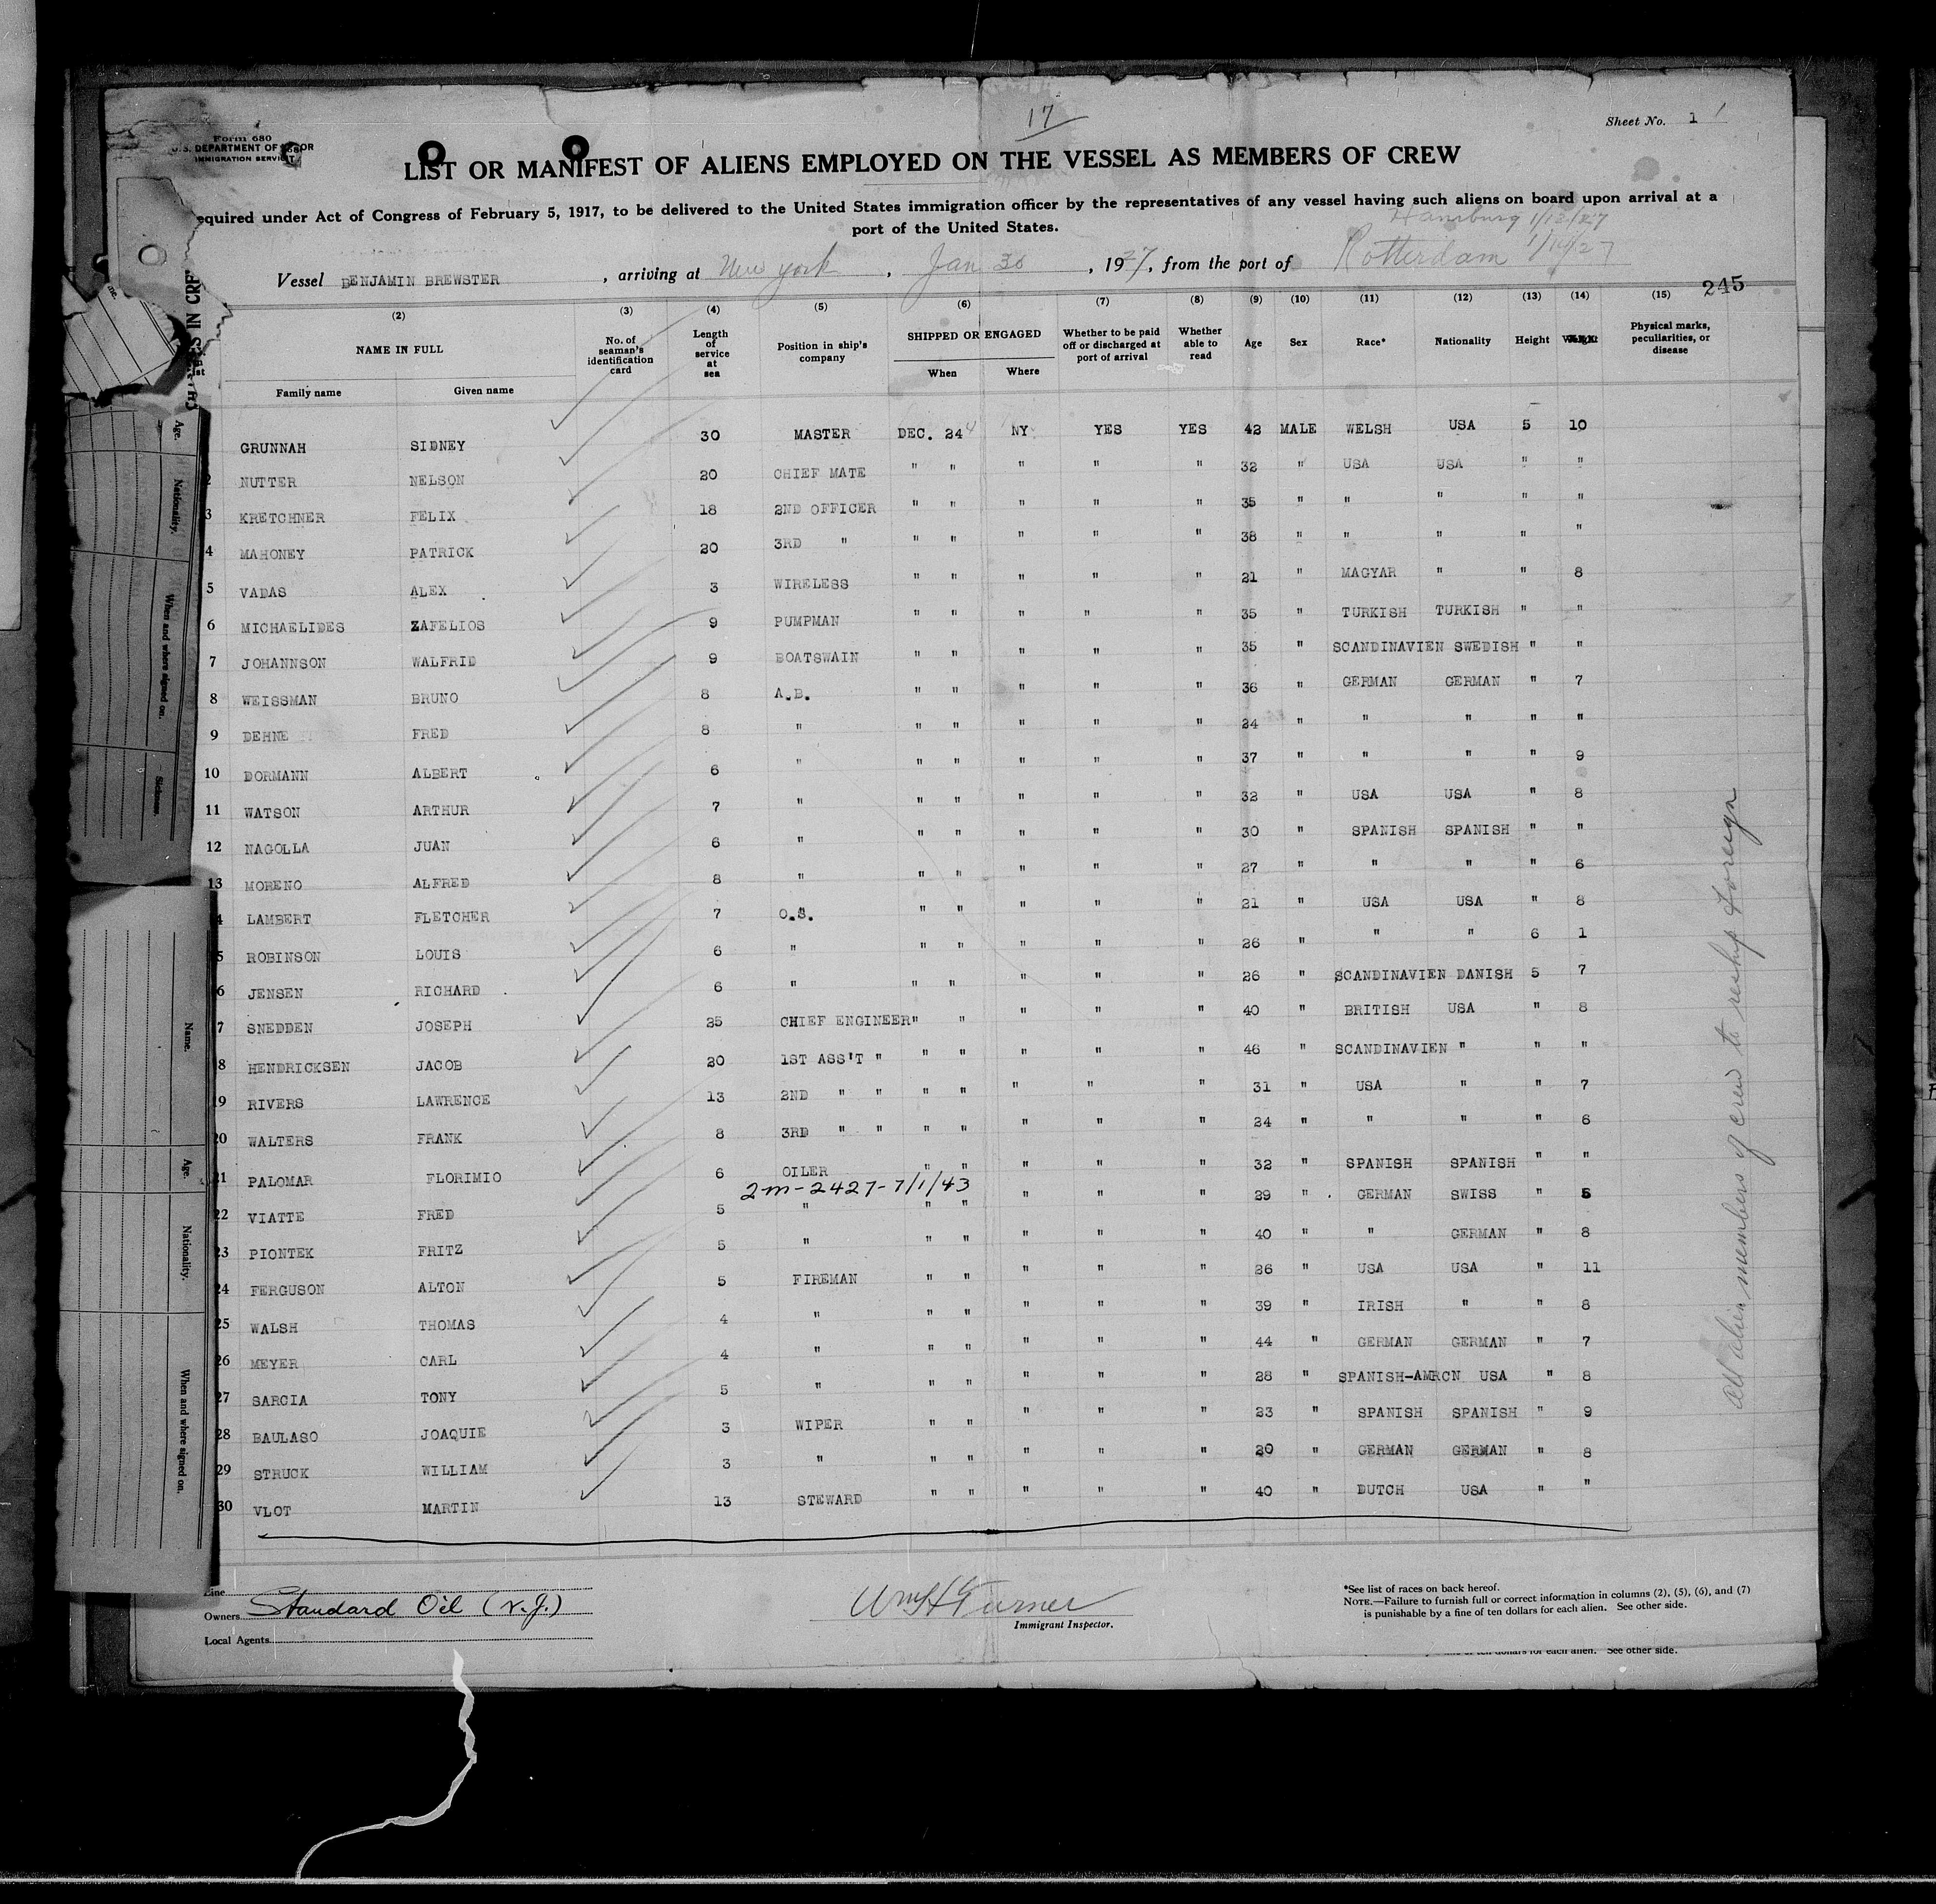 17
Sheet No. 1
Form 680
U.S. DEPARTMENT OF LABOR
IMMIGRATION SERVICE
LIST OR MANIFEST OF ALIENS EMPLOYED ON THE VESSEL AS MEMBERS OF CREW
equired under Act of Congress of February 5, 1917, to be delivered to the United States immigration officer by the representatives of any vessel having such aliens on board upon arrival at a
port of the United States.
Hamburg 1/12/27
Vessel BENJAMIN BREWSTER, arriving at New york, Jan 30, 1927, from the port of Rotterdam 1/14/27
245
(2) (3) (4) (5) (6) (7) (8) (9) (10) (11) (12) (13) (14) (15)
NAME IN FULL Family name Given name No. of seaman's identification card Length of service at sea Position in ship's company SHIPPED OR ENGAGED When Where Whether to be paid off or discharged at port of arrival Whether able to read Age Sex Race* Nationality Height Physical marks, peculiarities, or disease
GRUNNAH SIDNEY 30 MASTER DEC. 24 NY YES YES 42 MALE WELSH USA 5 10
2 NUTTER NELSON 20 CHIEF MATE " " " " " 32 " USA USA " "
3 KRETCHNER FELIX 18 2ND OFFICER " " " " " 35 " " " " "
4 MAHONEY PATRICK 20 3RD " " " " " " 38 " " " " "
5 VADAS ALEX 3 WIRELESS " " " " " 21 " MAGYAR " " 8
6 MICHAELIDES ZAFELIOS 9 PUMPMAN " " " " " 35 " TURKISH TURKISH " "
7 JOHANNSON WALFRID 9 BOATSWAIN " " " " " 35 " SCANDINAVIEN SWEDISH " "
8 WEISSMAN BRUNO 8 A.B. " " " " " 36 " GERMAN GERMAN " 7
9 DEHNE FRED 8 " " " " " " 24 " " " " "
10 DORMANN ALBERT 6 " " " " " " 37 " " " " 9
11 WATSON ARTHUR 7 " " " " " " 32 " USA USA " 8
12 NAGOLLA JUAN 6 " " " " " " 30 " SPANISH SPANISH " "
13 MORENO ALFRED 8 " " " " " " 27 " " " " 6
4 LAMBERT FLETCHER 7 O.S. " " " " " 21 " USA USA " 8
5 ROBINSON LOUIS 6 " " " " " " 26 " " " 6 1
6 JENSEN RICHARD 6 " " " " " " 26 " SCANDINAVIEN DANISH 5 7
7 SNEDDEN JOSEPH 25 CHIEF ENGINEER " " " " " 40 " BRITISH USA " 8
8 HENDRICKSEN JACOB 20 1ST ASS'T " " " " " " 46 " SCANDINAVIEN " " "
19 RIVERS LAWRENCE 13 2ND " " " " " " " 31 " USA " " 7
20 WALTERS FRANK 8 3RD " " " " " " " 24 " " " " 6
21 PALOMAR FLORIMIO 6 OILER " " " " " 32 " SPANISH SPANISH " "
2-m-2427-7/1/43
22 VIATTE FRED 5 " " " " " " 29 " GERMAN SWISS " 5
23 PIONTEK FRITZ 5 " " " " " " 40 " " GERMAN " 8
24 FERGUSON ALTON 5 FIREMAN " " " " " 26 " USA USA " 11
25 WALSH THOMAS 4 " " " " " " 39 " IRISH " " 8
26 MEYER CARL 4 " " " " " " 44 " GERMAN GERMAN " 7
27 SARCIA TONY 5 " " " " " " 28 " SPANISH-AMRCN USA " 8
28 BAULASO JOAQUIE 3 WIPER " " " " " 23 " SPANISH SPANISH " 9
29 STRUCK WILLIAM 3 " " " " " " 20 " GERMAN GERMAN " 8
30 VLOT MARTIN 13 STEWARD " " " " " 40 " DUTCH USA " "
All alien members of crew to reship foreign
Line
Owners Standard Oil (N.J.)
Local Agents
Wm H Turner
Immigrant Inspector.
*See list of races on back hereof.
NOTE.—Failure to furnish full or correct information in columns (2), (5), (6), and (7)
is punishable by a fine of ten dollars for each alien. See other side.
ten dollars for each alien. See other side.
Age.
Nationality.
When and where signed on.
Sickness.
Name.
Age.
Nationality.
When and where signed on.